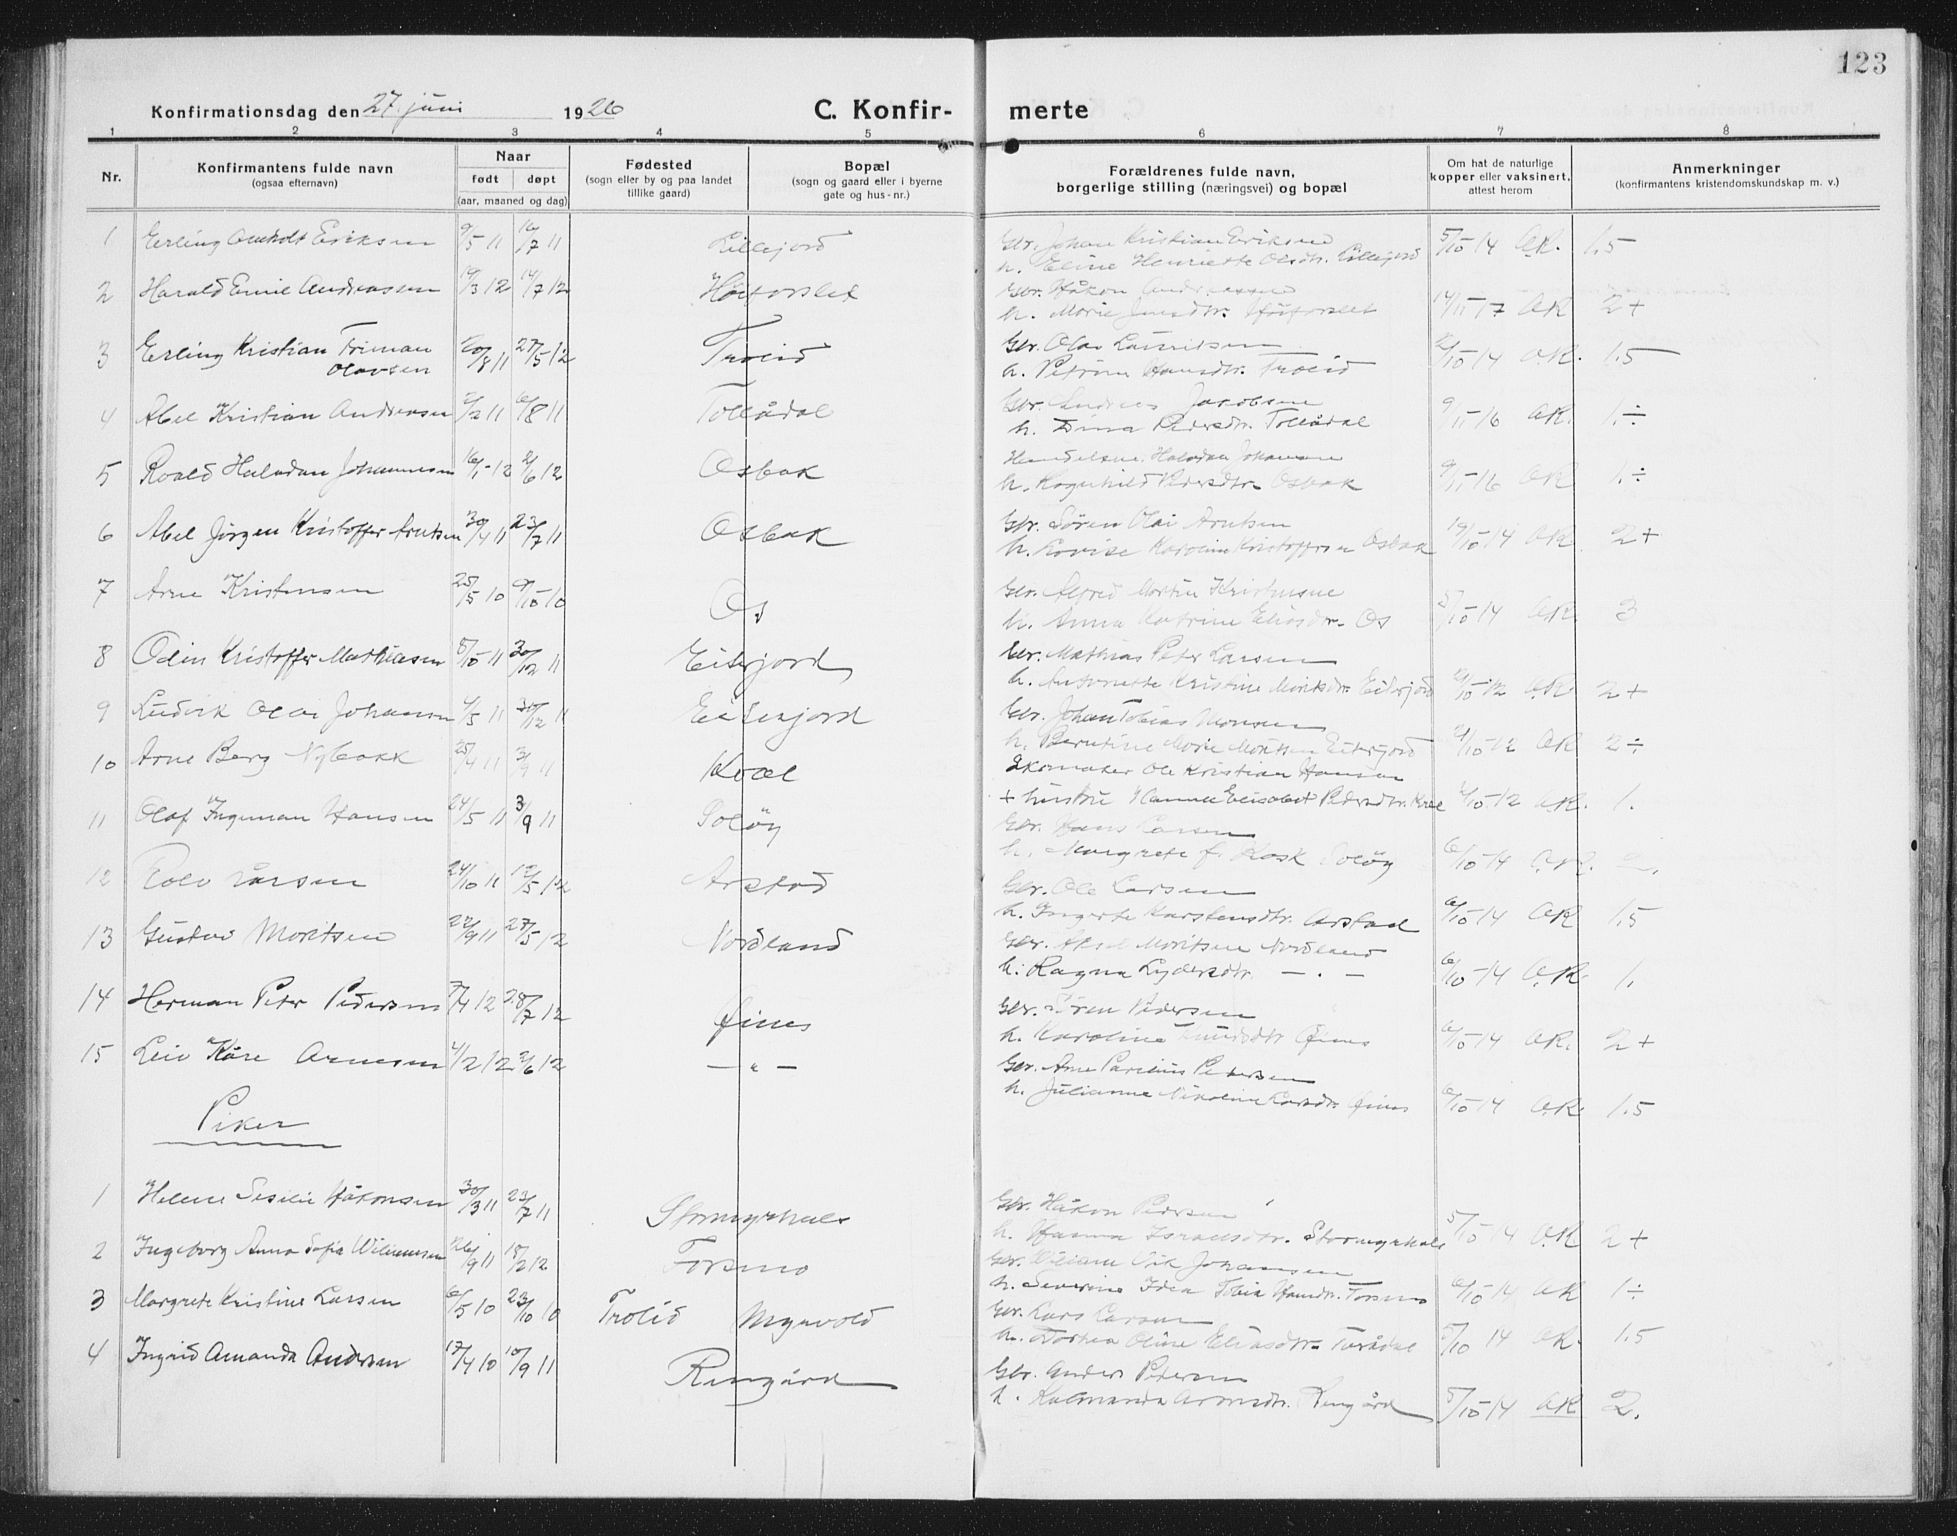 123
Konfirmationsdag den 27. juni 1926 C. Konfir- merte
1 2 3 4 5 6 7 8
Nr. Konfirmantens fulde navn (ogsaa efternavn) Naar født døpt (aar, maaned og dag) Fødested (sogn eller by og paa landet tillike gaard) Bopæl (sogn og gaard eller i byerne gate og hus-nr.) Forældrenes fulde navn, borgerlige stilling (næringsvei) og bopæl Om hat de naturlige kopper eller vaksinert, attest herom Anmerkninger (konfirmantens kristendomskundskap m. v.)
1 Erling Eriksen 9/5 11 16/7 11 Lillejord Gbr. Johan Kristian Eriksen 5/10 14 A.R. 1.5
h. Eline Henriette Olsdtr. Lillejord
2 Harald Emil Andreassen 14/7 12 Gbr. Håkon Andreassen
h. Marie 14/11 17 AR 2+
3 Erling Kristian Friman 20/8 11 27/5 12 Troeid Gbr. Olav Lauritsen
Olavsen h. Petrine Hansdtr. Troeid 10 14 A.R. 1.5
4 Abel Kristian Andreasen 2 11 6/8 11 Tollådal Gbr. Andreas Jakobsen
h. Dina Pedersdtr. Tollådal 9/11 16 A.R. 1÷
5 Roald Halvdan Johannesen 16/1 12 2/6 12 Osbak Halvdan Johansen
h. Ragnhild Pedersdtr. Osbak 9/11 16 AR 1÷
6 Abel Jørgen Kristoffer Arntsen 30/4 11 23/7 11 Osbak Gbr. Søren Olai Arntsen
h. Lovise Karoline Kristoffersen Osbak 19/10 14 A.R. 2+
7 Arne Kristensen 25/5 10 9/10 10 Os Gbr. Alfred Martin Kristensen
h. Anna Katrine Eliasdtr. Os 5/10 14 A.R. 3
8 Odin Kristoffer Mathiasen 5/10 11 30/12 11 Eiterjord Gbr. Mathias Peter Larsen
h. Antonette Kristine Moritsdtr. Eiterjord 10 12 A.R. 2+
9 Ludvik Olai Johansen 4/5 11 30/12 11 Eiterjord Gbr. Johan Tobias Monsen
h. Berntine Marie Moritsen Eiterjord 10 12 A.R. 2÷
10 Arne Berg Nybakk 25/4 11 3/9 11 Kval Skomaker Ole Kristian Hansen
+ hustru Hanna Elisabet Pedersdtr. Kval 10 12 A.R. 1.
11 Olaf Ingeman Hansen 24/5 11 3/9 11 Soløy Gbr. Hans Larsen
h. Margrete f. Rask Soløy 6/10 14 A.R. 2.
12 Larsen 24/10 11 12/5 12 Arstad Gbr. Ole Larsen
h. Ingerte Karstensdtr. Arstad 6/10 14 A.R. 1.5
13 Gustav Moritsen 22/9 11 27/5 12 Nordland Gbr. Aksel Moritsen Nordland
h. Ragna Lydersdtr. — . — 6/10 14 A.R. 1.
14 Herman Peter Pedersen 7/4 12 28/7 12 Øines Gbr. Søren Pedersen
h. Karoline Knudsdtr. Øines 6/10 14 A.R. 2+
15 Leiv Kåre Arnesen 4/2 12 2/6 12 — " — Gbr. Arne Parelius Petersen
h. Julianne Nikoline Larsdtr. Øines 6/10 14 A.R. 1.5
Piker
1 Helene Sesilie Håkonsen 30/3 11 23/7 11 Stormyrhals Gbr. Håkon Pedersen
h. Hanna Israelsdtr. Stormyrhals 5/10 14 A.R. 2+
2 Ingeborg Anna Sofie Wiliamsen 26/9 11 18/2 12 Forsmo Gbr. Wiliam Vik Johansen
h. Severine Idea Hansdtr. Forsmo 6/10 14 A.R. 1÷
3 Margrete Kristine Larsen 6/5 10 23/10 10 Troeid Myrvold Gbr. Lars Larsen
h. Dorthea Oline Eliasdtr. 5/10 14 A.R. 1.5
4 Ingrid Amanda Andersen 17/4 10 10/9 11 Rengård Gbr. Anders Petersen
h. Kalmanda Rengård 5/10 14 A.R. 2.